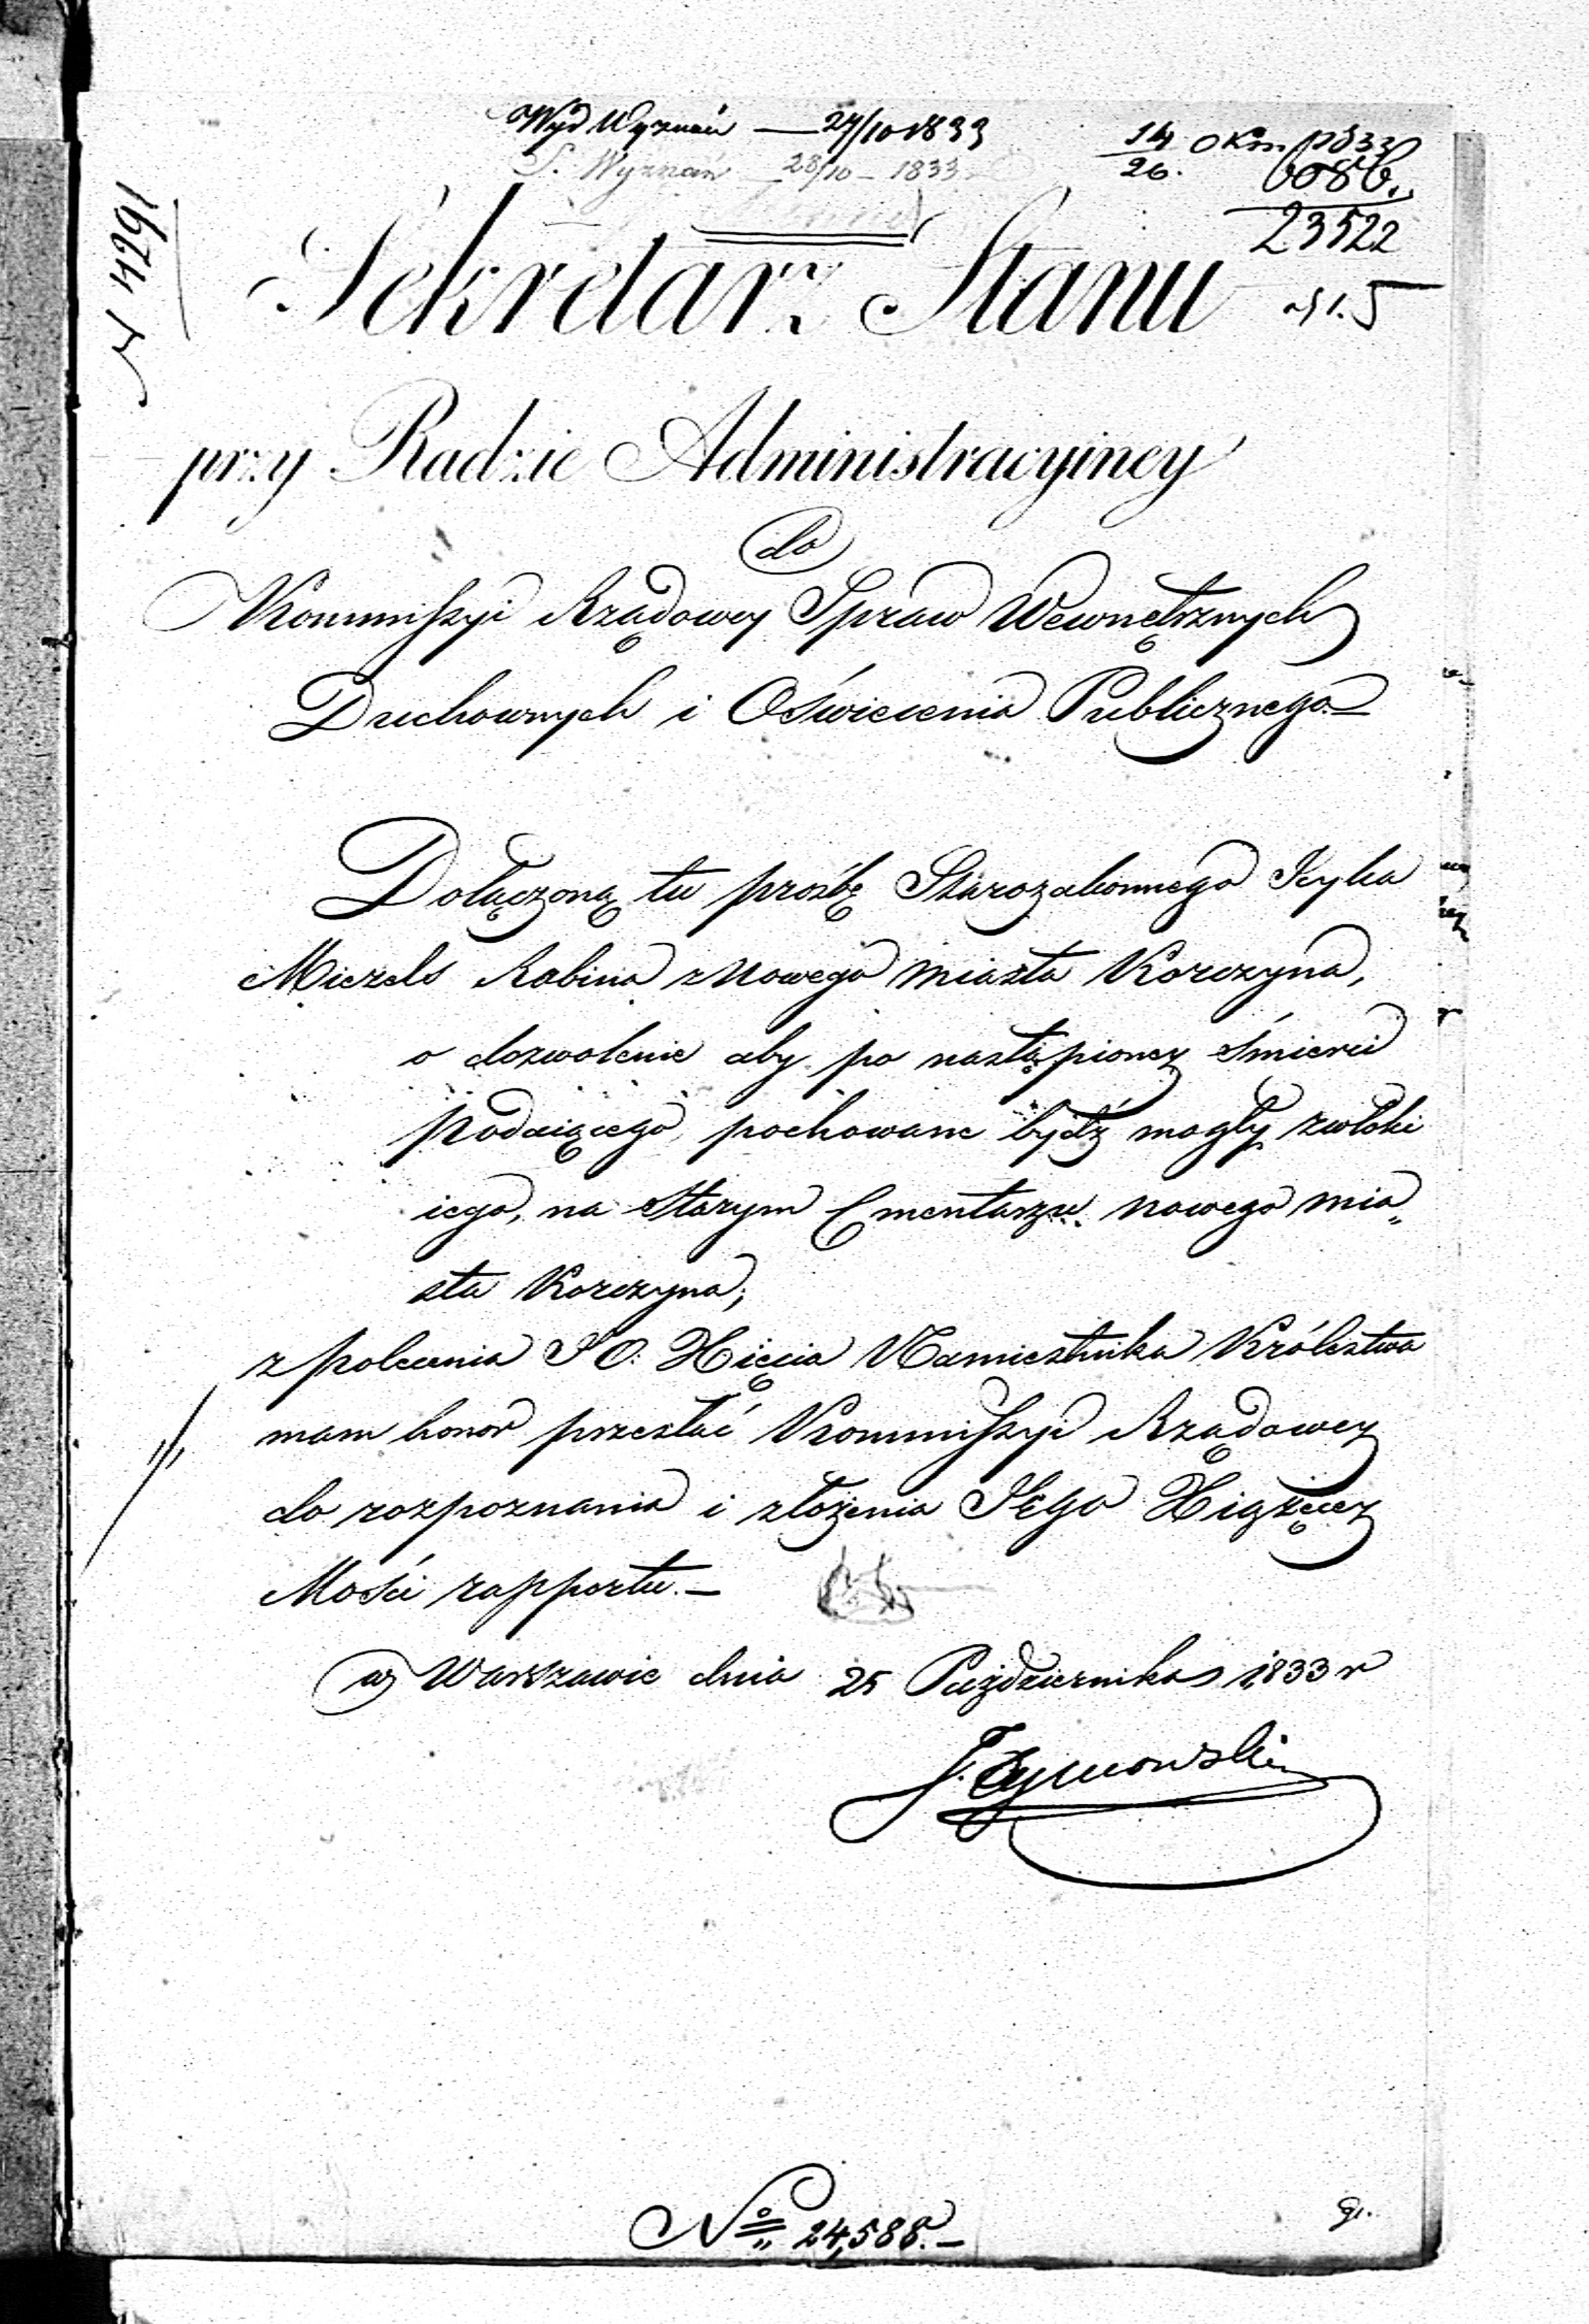 Wyd Wyznań — 27/10 1833
S. Wyznań — 28/10 – 1833
14/26.
6086.
23522
N 4291
Sekretarz Stanu
przy Radzie Administracyiney
do
Kommissyi Rządowey Spraw Wewnętrznych
Duchownych i Oświecenia Publicznego
Dołączoną tu prośbę Starozakonnego Icyka
Miezels Rabina z Nowego Miasta Korczyna,
o dozwolenie aby po nastąpioney śmierci
podaiącego, pochowane bydź mogły zwłoki
iego, na Starym Cmentarzu Nowego mia„
sta Korczyna;
z polecenia J O: Xięcia Namiestnika Królestwa
mam honor przesłać Kommissyi Rządowey
do rozpoznania i złożenia Jego Xiążęcey
Mości rapportu.—
w Warszawie dnia 25 Października 1833 r
J. Tymowski
No 24,588.—